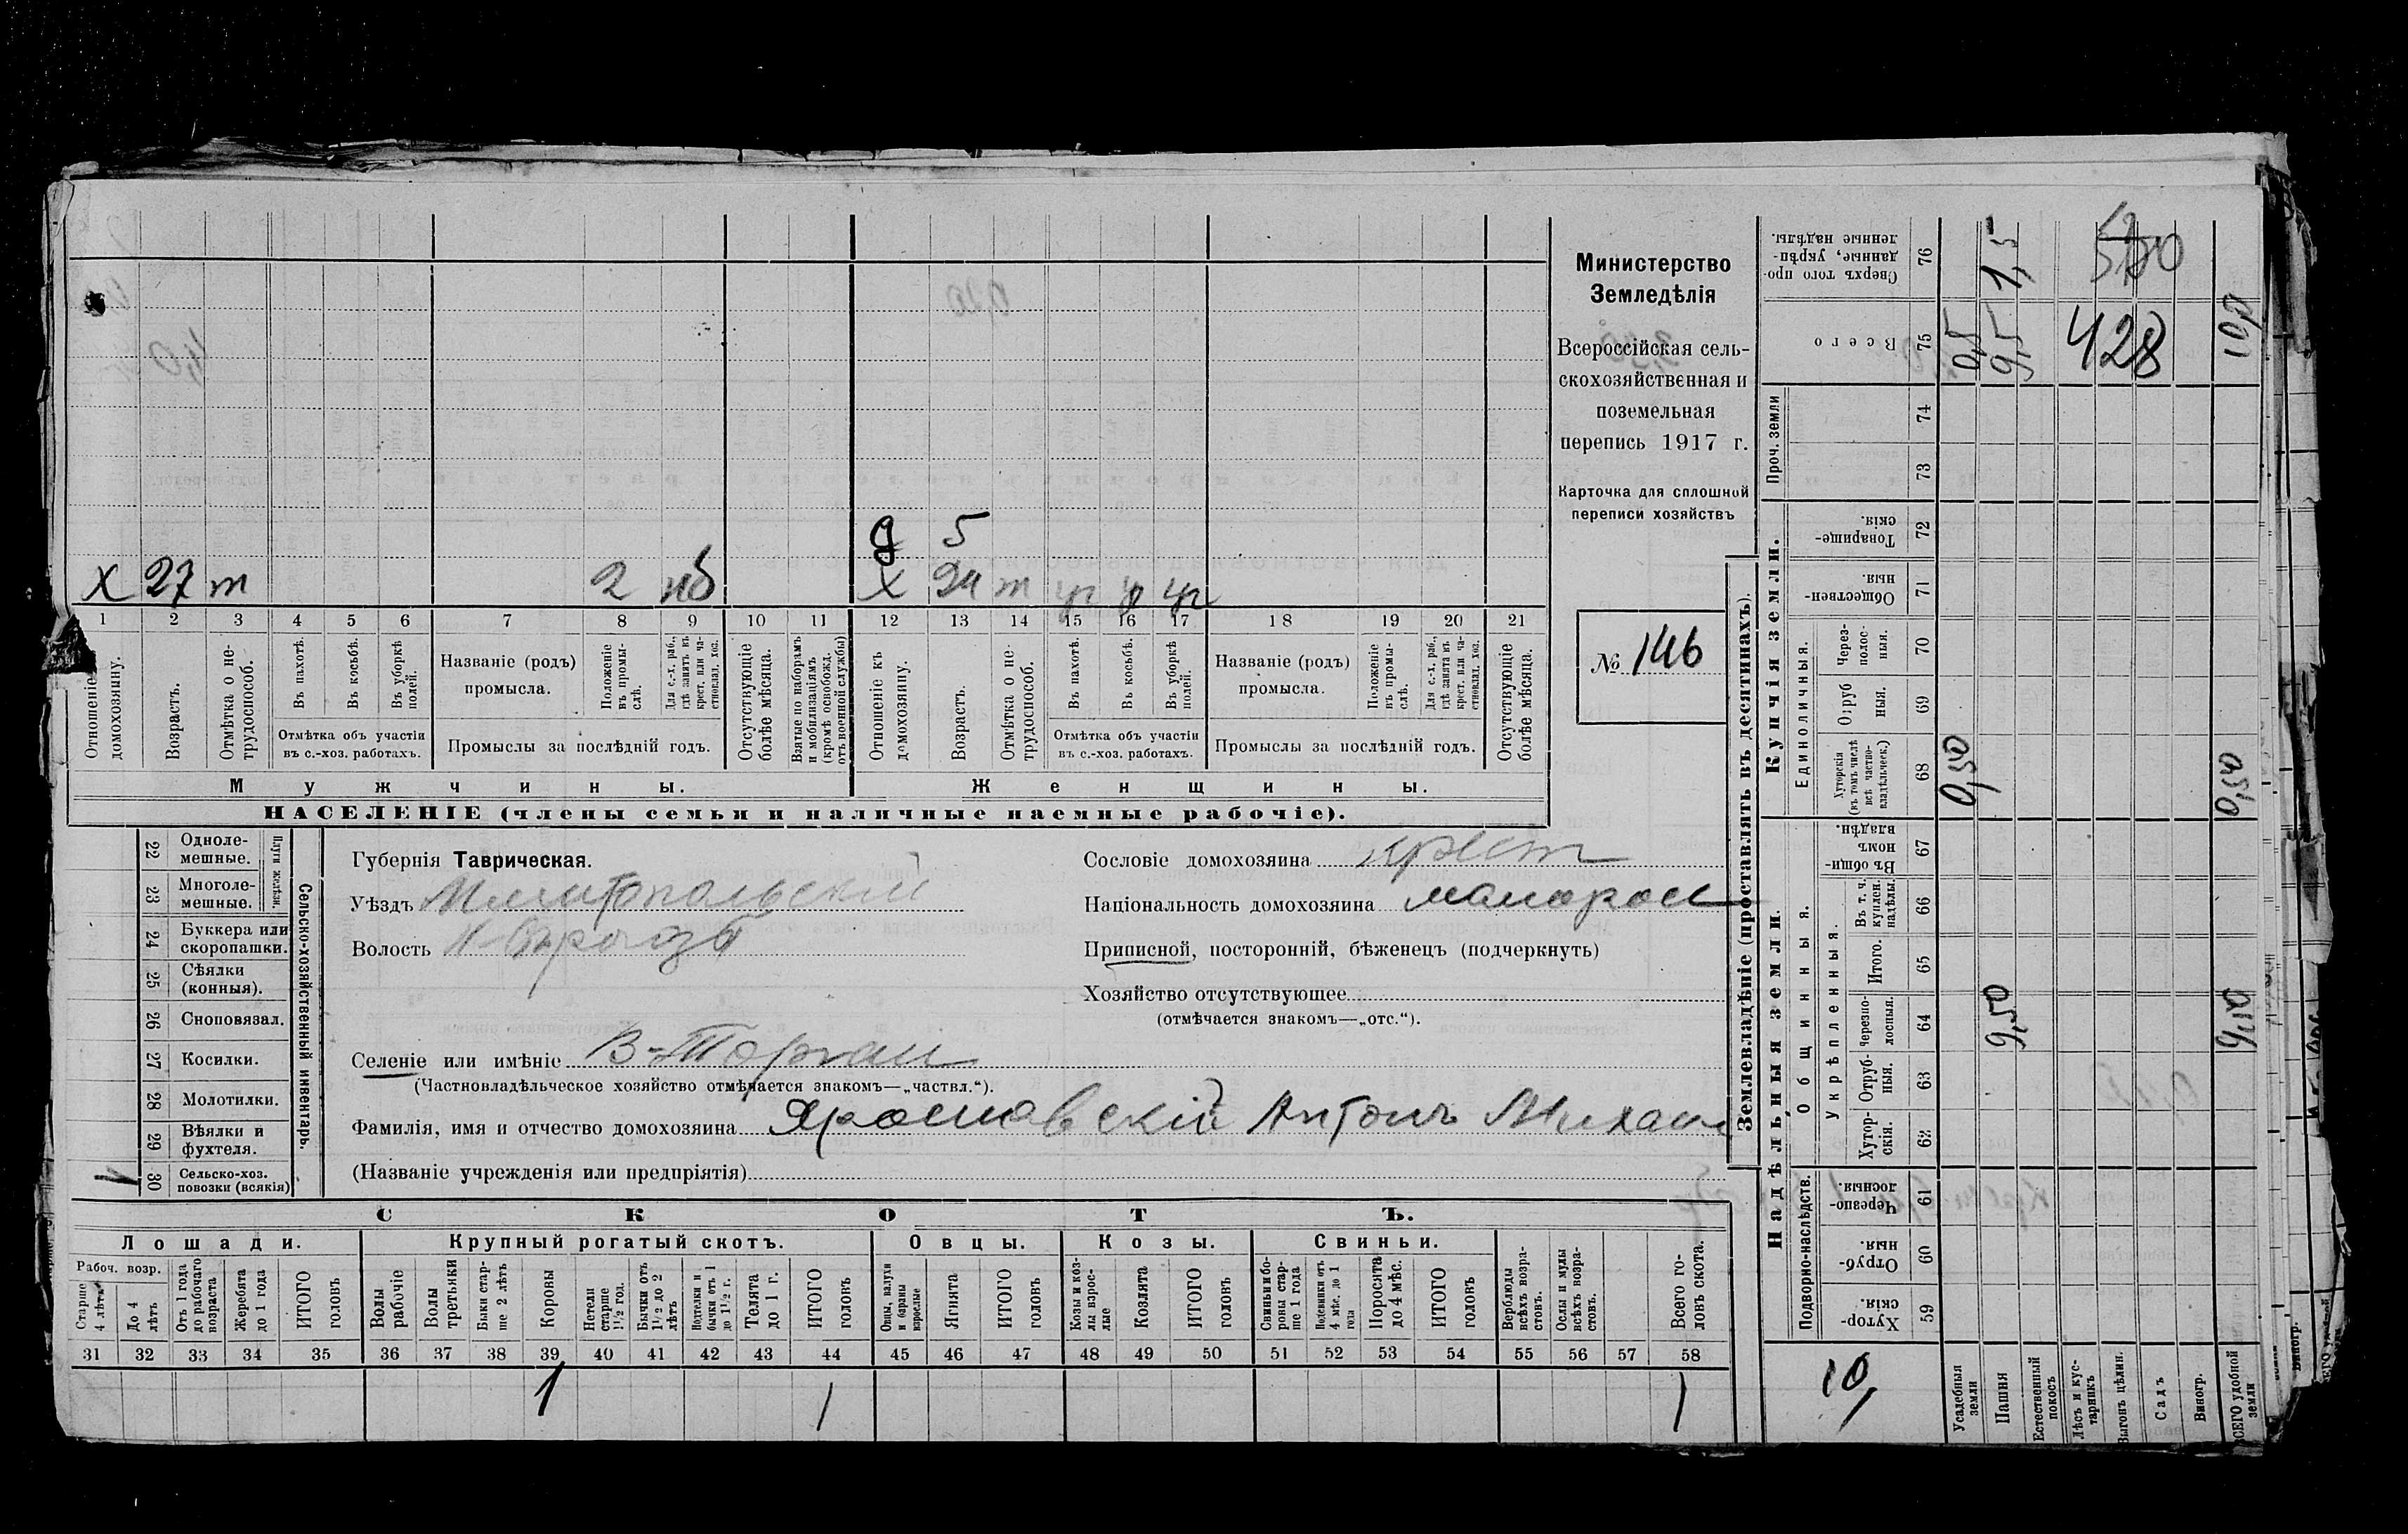 Х 27 т 2 нб
д 5
Х 24 т ур у ур
1 2 3 4 5 6 7 8 9 10 11 12 13 14 15 16 17 18 19 20 21
Отношеніе къ домохозяину.
Возрастъ.
Отмѣтка о не-трудоспособ.
Въ пахотѣ.
Въ косьбѣ.
Въ уборкѣ полей.
Отмѣтка объ участіи въ с.-хоз. работахъ.
Названіе (родъ) промысла.
Положеніе въ промы-слѣ.
Для с.-х. раб., гдѣ занятъ въ крест. или ча-стновлад. хоз.
Промыслы за послѣдній годъ.
Отсутствующіе болѣе мѣсяца.
Взятые по наборамъ и мобилизаціямъ (кромѣ освобожд. отъ военной службы)
Отношеніе къ домохозяину.
Возрастъ.
Отмѣтка о не-трудоспособ.
Въ пахотѣ.
Въ косьбѣ.
Въ уборкѣ полей.
Отмѣтка объ участіи въ с.-хоз. работахъ.
Названіе (родъ) промысла.
Положеніе въ промы-слѣ.
Для с.-х. раб., гдѣ занята въ крест. или ча-стновлад. хоз.
Промыслы за послѣдній годъ.
Отсутствующіе болѣе мѣсяца.
Мужчины. Женщины.
НАСЕЛЕНІЕ (члены семьи и наличные наемные рабочіе).
Министерство
Земледѣлія
Всероссійская сель-
скохозяйственная и
поземельная
перепись 1917 г.
Карточка для сплошной
переписи хозяйствъ
№ 146
22 Одноле-мешные.
23 Многоле-мешные.
Плуги желѣзн.
24 Буккера или скоропашки.
25 Сѣялки (конныя).
26 Сноповязал.
27 Косилки.
28 Молотилки.
29 Вѣялки и фухтеля.
1 30 Сельско-хоз. повозки (всякія)
Сельско-хозяйственный инвентарь.
Губернія Таврическая.
Уѣздъ Мелитопольскій
Волость
Селеніе или имѣніе В-Торгаи
(Частновладѣльческое хозяйство отмѣчается знакомъ—„частвл.“).
Фамилія, имя и отчество домохозяина Ярославскій Антонъ Михаил
(Названіе учрежденія или предпріятія)
Сословіе домохозяина крест
Національность домохозяина малорос
Приписной, посторонній, бѣженецъ (подчеркнуть)
Хозяйство отсутствующее
(отмѣчается знакомъ—„отс.“).
СКОТЪ.
Лошади. Крупный рогатый скотъ. Овцы. Козы. Свиньи.
Рабоч. возр.
Старше 4 лѣтъ
До 4 лѣтъ
Отъ 1 года до рабочаго возраста
Жеребята до 1 года
ИТОГО головъ
Волы рабочіе
Волы третьяки
Быки стар-ше 2 лѣтъ
Коровы
Нетели старше 1½ год.
Бычки отъ 1½ до 2 лѣтъ
Подтелки и бычки отъ 1 до 1½ г.
Телята до 1 г.
ИТОГО головъ
Овцы, валухи и бараны взрослые
Ягнята
ИТОГО головъ
Козы и коз-лы взрос-лые
Козлята
ИТОГО головъ
Свиньи и бо-ровы стар-ше 1 года
Подсвинки отъ 4 мѣс. до 1 года
Поросята до 4 мѣс.
ИТОГО головъ
Верблюды всѣхъ возра-стовъ.
Ослы и мулы всѣхъ возра-стовъ.
Всего го-ловъ скота.
31 32 33 34 35 36 37 38 39 40 41 42 43 44 45 46 47 48 49 50 51 52 53 54 55 56 57 58
1 1 1
Землевладѣніе (проставлять въ десятинахъ).
Надѣльныя земли. Купчія земли. Проч. земли
Подворно-наслѣдств.
Общинныя.
Укрѣпленныя.
Единоличныя.
Хутор-скія. 59
Отруб-ныя 60
Черезпо-лосныя. 61
Хутор-скія. 62
Отруб-ныя. 63
Черезпо-лосныя. 64
Итого. 65
Въ т. ч. куплен. надѣлы. 66
Въ общин-номъ владѣн. 67
Хуторскія (въ томъ числѣ всѣ частно-владѣльческ.) 68
Отруб ныя. 69
Через-полос-ныя. 70
Обществен-ныя. 71
Товарище-скія. 72
73
74
Всего 75
Сверхъ того про-данные, укрѣп-ленные надѣлы. 76
10
Усадебныя земли 0,50 0,5
Пашня 9,50 9,5 1,5
Естественный покосъ
Лѣсъ и кус-тарникъ
Выгонъ цѣлин.
Садъ
Виногр.
ВСЕГО удобной земли 9,50 0,50 10,0
428